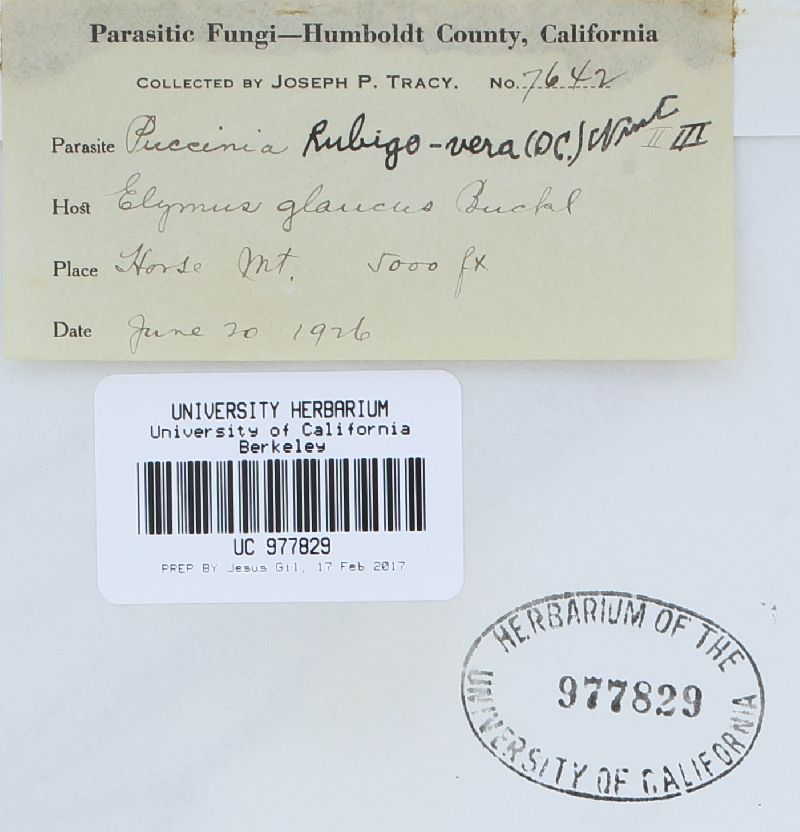 Parasitic Fungi—Humboldt County, California
COLLECTED BY JOSEPH P. TRACY. No. 7642
Parasite Puccinia Rubigo-vera (DC.) Wint II III
Host Elymus glaucus Buckl
Place Horse Mt. 5000 ft
Date June 20 1926
UNIVERSITY HERBARIUM
University of California
Berkeley
UC 977829
PREP BY Jesus Gil, 17 Feb 2017
HERBARIUM OF THE
977829
UNIVERSITY OF CALIFORNIA